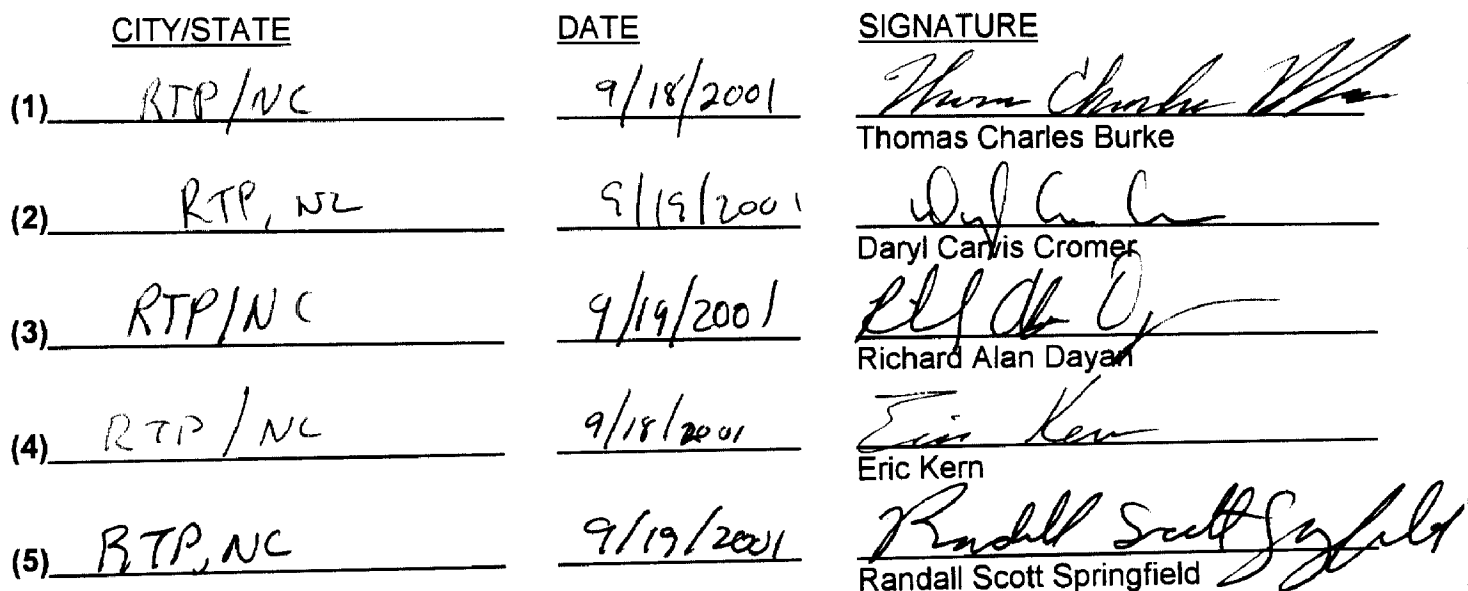 CITY/STATE DATE SIGNATURE
(1) RTP/NC 9/18/2001 Thomas Charles
Thomas Charles Burke
(2) RTP, NC 9/19/2001
Daryl Carvis Cromer
(3) RTP/NC 9/19/2001
Richard Alan Dayan
(4) RTP/NC 9/18/2001 Eric Kern
Eric Kern
(5) RTP, NC 9/19/2001 Randall Scott Springfield
Randall Scott Springfield